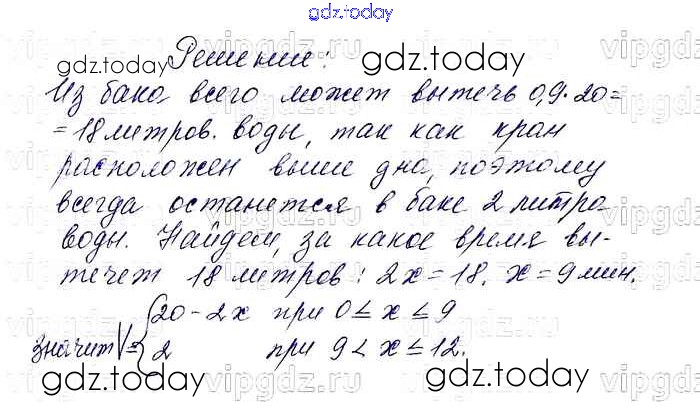 gdz.today
Решение:
Из бака всего может вытечь 0,9·20=
=18 литров. воды, так как кран
расположен выше дна, поэтому
всегда останется в баке 2 литра
воды. Найдем, за какое время вы-
течет 18 литров: 2x=18. x=9 мин.
20-2x при 0≤x≤9
значит V=
2 при 9<x≤12.
gdz.today
gdz.today
gdz.today
gdz.today
gdz.today
gdz.today
vipgdz.ru
vipgdz.ru
vipgdz.ru
vipgdz.ru